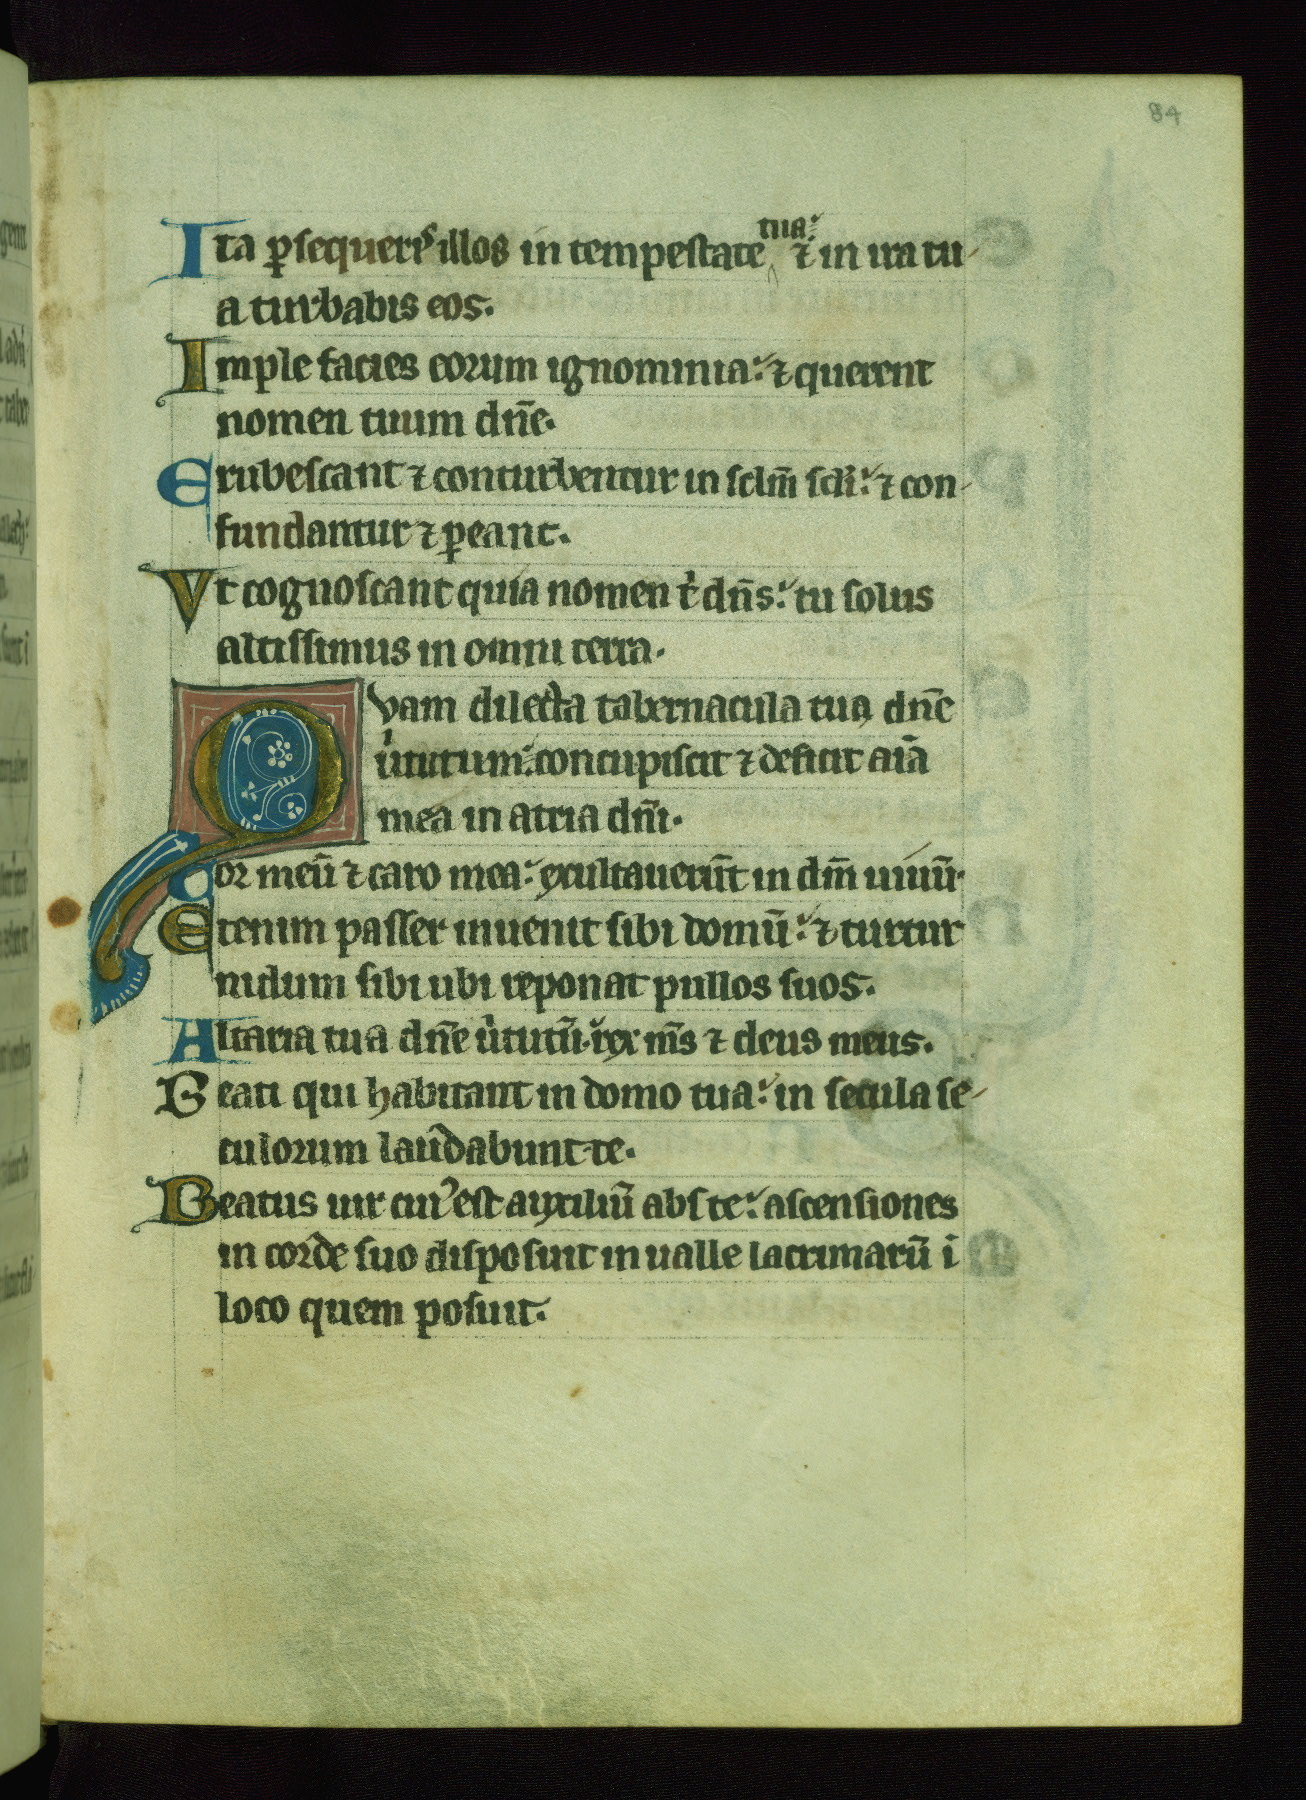 84
Ita ꝑsequeris illos in tempestate tua: ⁊ in ira tu-
a turbabis eos.
Imple facies eorum ignominia: ⁊ querent
nomen tuum dn̄e.
Erubescant ⁊ conturbentur in sclm̄ scli: ⁊ con-
fundantur ⁊ ꝑeant.
Vt cognoscant quia nomen t' dn̄s: tu solus
altissimus in omni terra.
Quam dilecta tabernacula tua dn̄e
u'tutum: concupiscit ⁊ deficit aīa
mea in atria dn̄i.
Cor meū ⁊ caro mea: exultauerūt in dm̄ uiuū.
Etenim passer inuenit sibi domū: ⁊ turtur
nidum sibi ubi reponat pullos suos.
Altaria tua dn̄e u'tutū: rex m̄s ⁊ deus meus.
Beati qui habitant in domo tua: in secula se-
culorum laudabunt te.
Beatus uir cui' est auxiliū abs te: ascensiones
in corde suo disposuit in ualle lacrimarū ī
loco quem posuit.